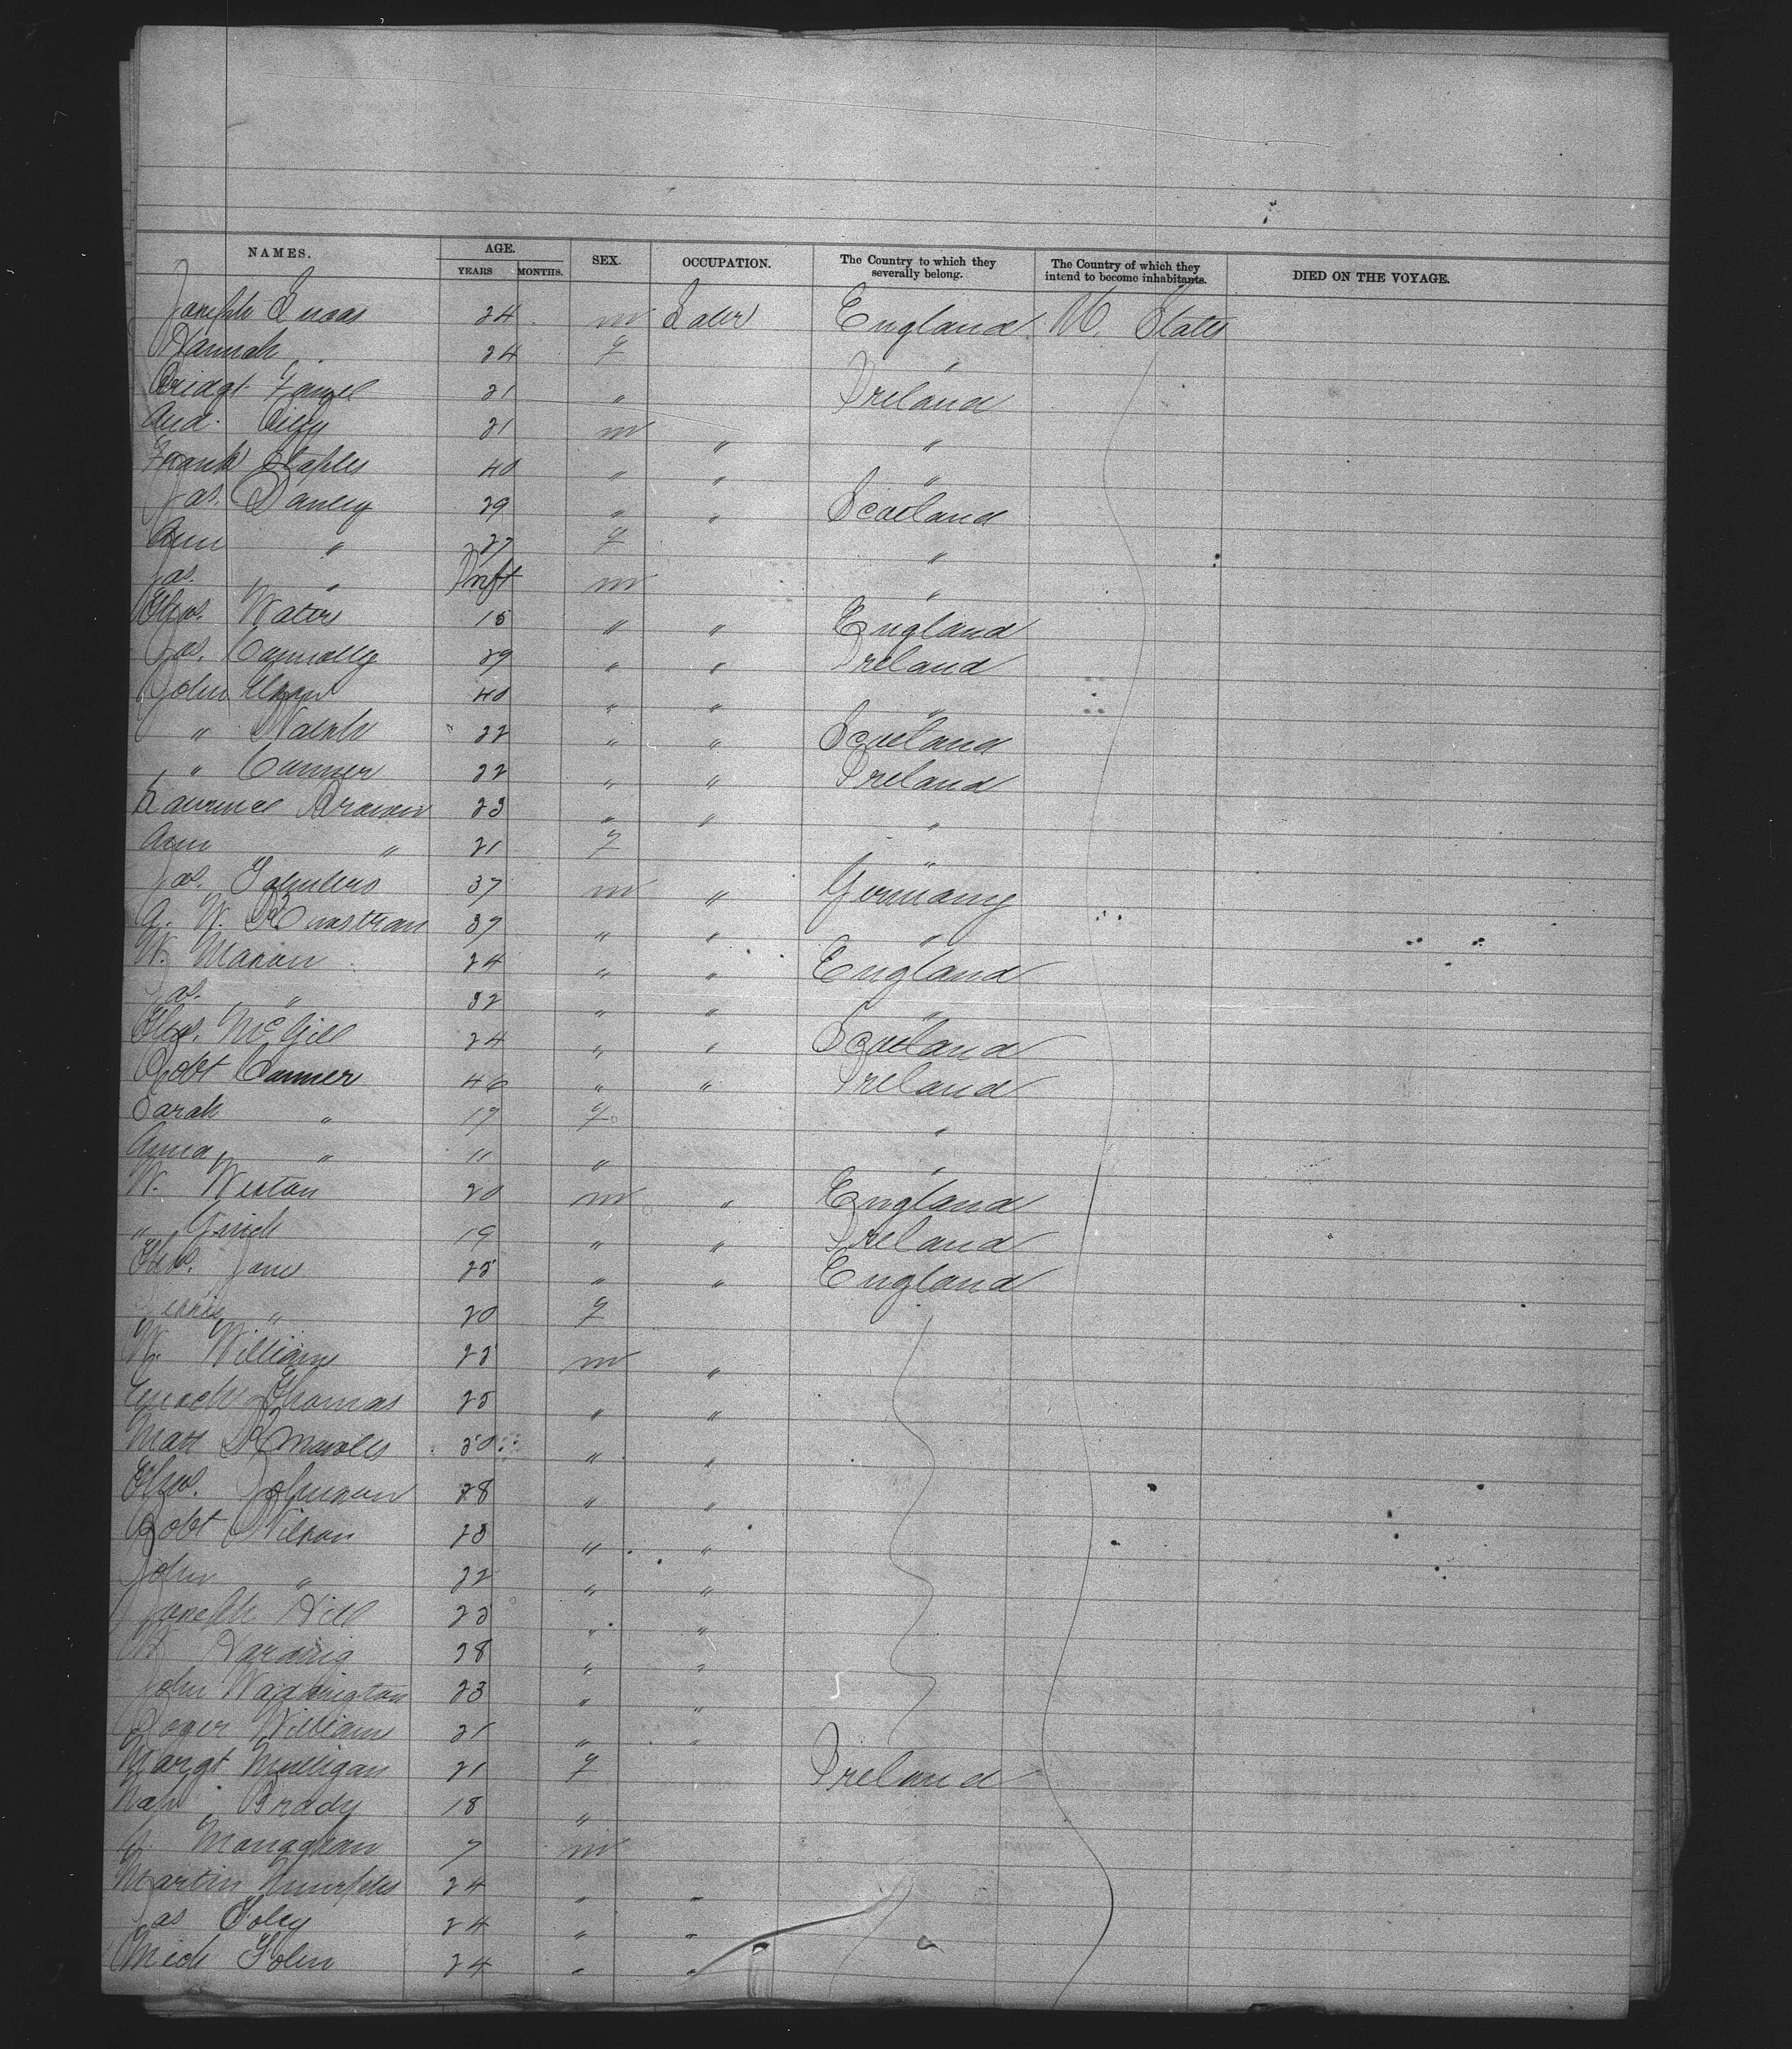 NAMES. AGE. YEARS MONTHS. SEX. OCCUPATION. The Country to which they severally belong. The Country of which they intend to become inhabitants. DIED ON THE VOYAGE.
Joseph 24 m Labr England U. States
Hannah 24 f "
Bridgt Farrel 21 " Ireland
And. 21 m " "
Frank Staples 40 " " "
Jas. Danley 29 " " Scotland
Ann " 27 f "
Jas. " Inft m "
Thos. Waters 15 " " England
Jas. Connolly 29 " " Ireland
John 40 " " "
" Walsh 22 " " Scotland
" Conner 22 " " Ireland
Laurence Brown 23 " " "
Ann " 21 f "
Jos. 37 m " Germany
A. W. 37 " " "
W. Mason 24 " " England
Jas. " 32 " " "
Thos. McGill 24 " " Scotland
Robt Conner 46 " " Ireland
Sarah " 17 f "
Anna " 11 " "
W. Weston 20 m " England
" 19 " " Ireland
Thos. Jane 25 " " England
" 20 f
W. Williams 25 m "
Enoch Thomas 25 " "
Matt " "
Thos. Johnson 28 " "
Robt Wilson 23 " "
John " 22 " "
Joseph Hill 25 " "
W Harding 28 " "
John Waddington 23 " "
Roger Williams 21 " "
Margt Mulligan 21 f Ireland
Brady 18 "
Monaghan 7 m
Martin 24 " "
Jas Foley 24 " "
Mich 24 " "